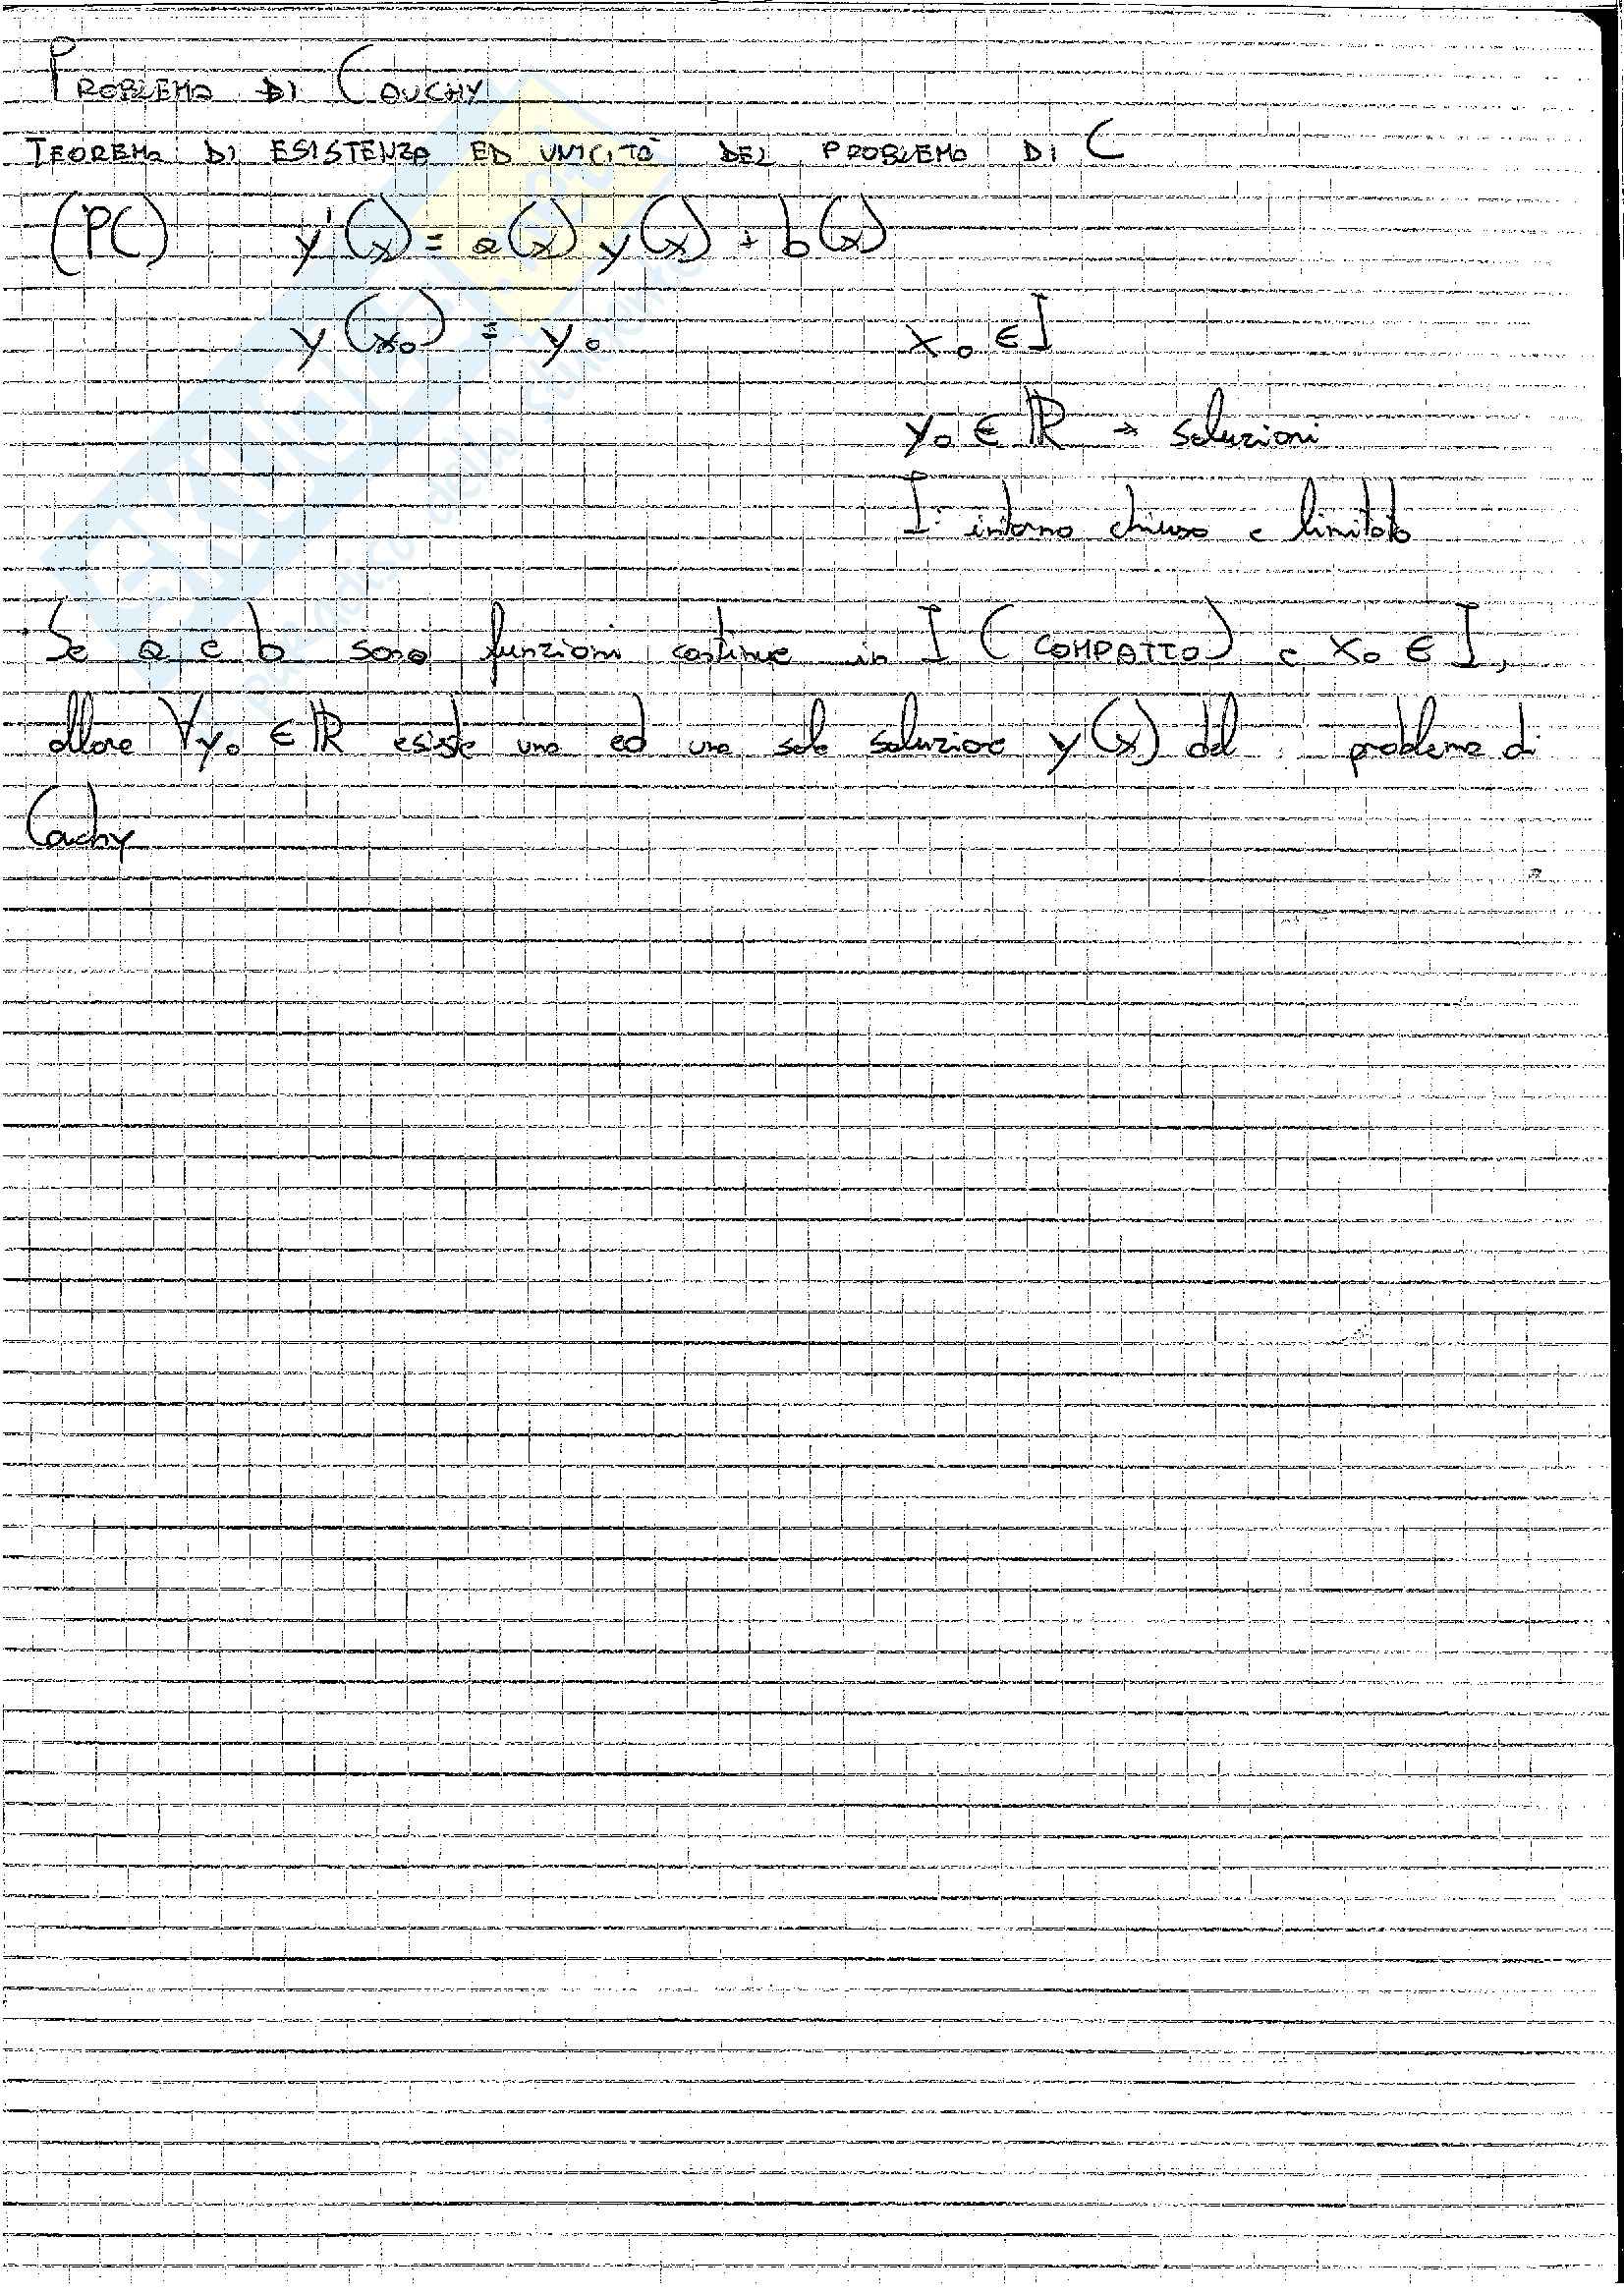 PROBLEMA DI CAUCHY
TEOREMA DI ESISTENZA ED UNICITÀ DEL PROBLEMA DI C
(PC) y'(x) = a(x) y(x) + b(x)
y(x₀) = y₀ x₀ ∈ I
y₀ ∈ ℝ → soluzioni
I: intorno chiuso e limitato
Se a e b sono funzioni continue in I (COMPATTO) e x₀ ∈ I,
allora ∀y₀ ∈ ℝ esiste una ed una sola soluzione y(x) del problema di
Cauchy